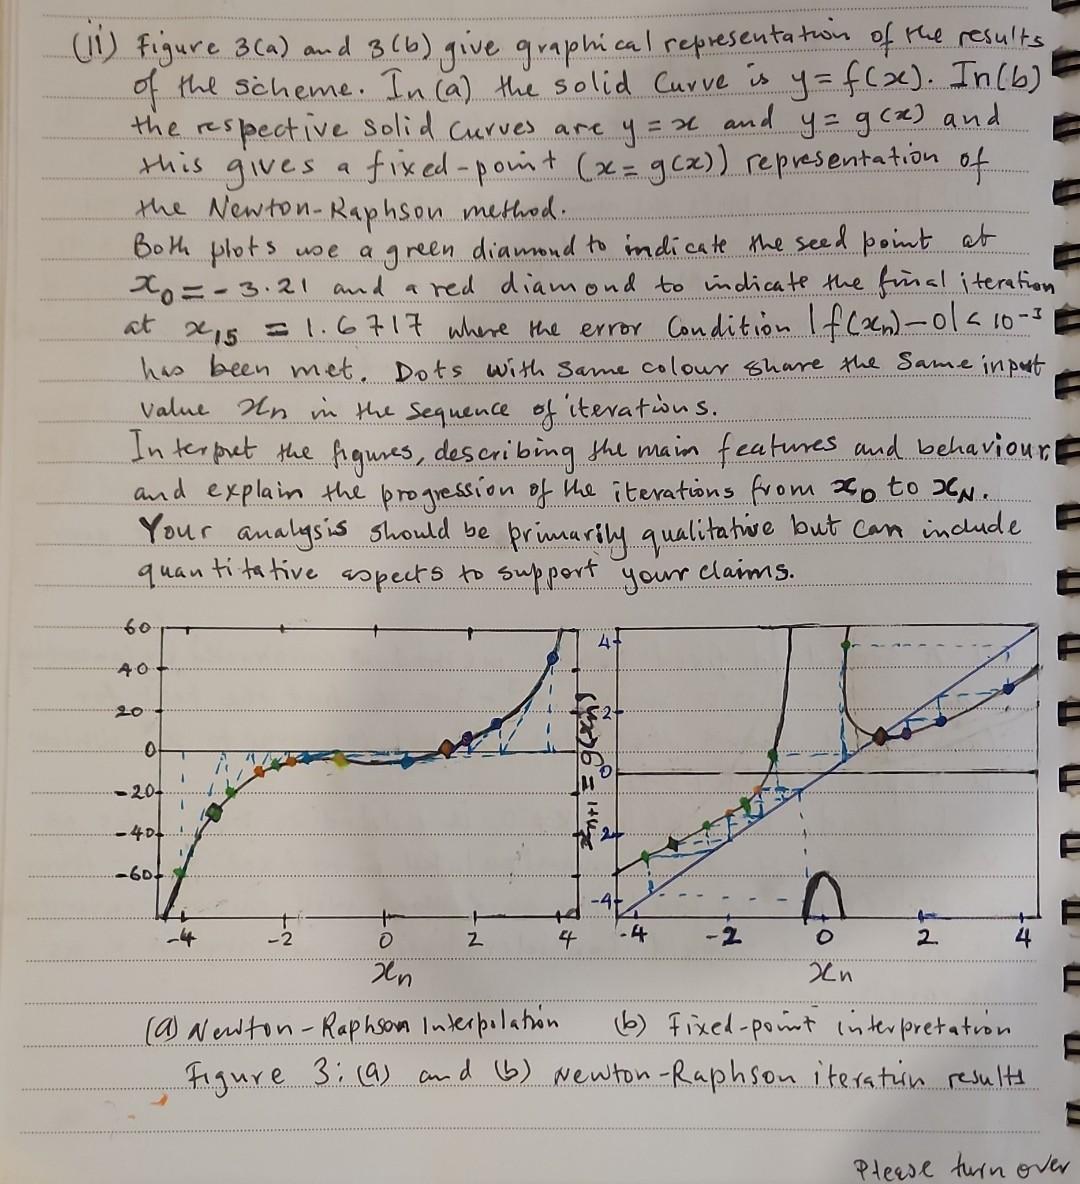 (ii) Figure 3(a) and 3(b) give graphical representation of the results
of the scheme. In (a) the solid curve is y = f(x). In (b)
the respective solid curves are y = x and y = g(x) and
this gives a fixed-point (x = g(x)) representation of
the Newton-Raphson method.
Both plots use a green diamond to indicate the seed point at
x₀ = -3.21 and a red diamond to indicate the final iteration
at x₁₅ = 1.6717 where the error condition |f(xₙ)-0| < 10⁻³
has been met. Dots with same colour share the same input
value xₙ in the sequence of iterations.
Interpret the figures, describing the main features and behaviour
and explain the progression of the iterations from x₀ to x_N.
Your analysis should be primarily qualitative but can include
quantitative aspects to support your claims.
60
40
20
0
-20
-40
-60
-4 -2 0 2 4
xₙ
xₙ₊₁ = g(xₙ)
4
2
0
2
-4
-4 -2 0 2 4
xₙ
(a) Newton-Raphson Interpolation (b) Fixed-point interpretation
Figure 3: (a) and (b) Newton-Raphson iteration results
Please turn over